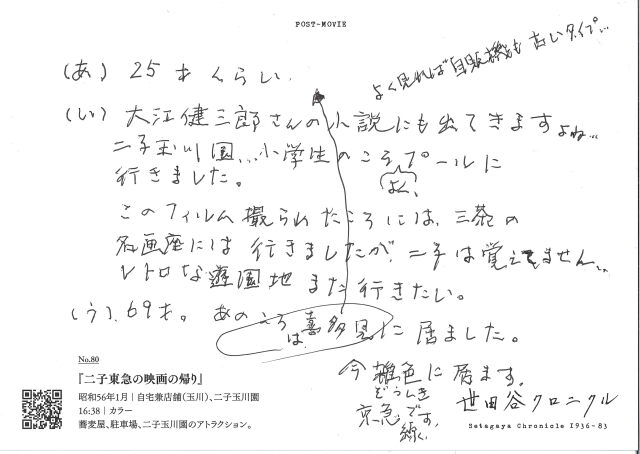 POST-MOVIE
よく見れば自販機も古いタイプ…
(あ) 25才くらい.
(い) 大江健三郎さんの小説にも出てきますよね…
二子玉川園…小学生のころプールに
よく、
行きました。
このフィルム撮られたころには、三茶の
名画座には行きましたが、二子は覚えてません…
レトロな遊園地また行きたい。
(う). 69才。あのころは喜多見に居ました。
今雑色に居ます。
ぞうしき
京急です。
続く
No.80
『二子東急の映画の帰り』
昭和56年1月│自宅兼店舗(玉川)、二子玉川園
16:38│カラー
蕎麦屋、駐車場、二子玉川園のアトラクション。
世田谷クロニクル
Setagaya Chronicle 1936-83